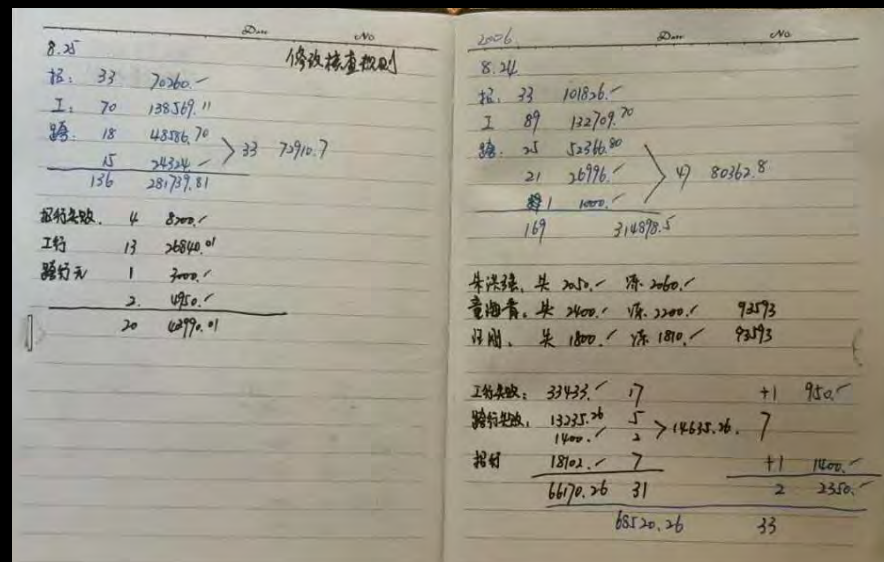 Date No
8.25 修改核查规则
招: 33 70260.-
工: 70 138569.11
跨: 18 48586.70
15 24324.- > 33 72910.7
136 281739.81
招行失败. 4 8200.-
工行 13 26840.01
跨行 1 3000.-
2. 4950.-
20 42990.01
2006. Date No
8.24
招: 33 101826.-
工 89 132709.70
跨: 25 52366.80
21 26996.- > 47 80362.8
1 1000.-
169 314898.5
失 2050.- 冻 2060.-
童海青, 失 2400.- 冻 2200.- 93593
汪刚, 失 1800.- 冻 1810.- 93593
工行失败: 33433.- 17 +1 950.-
跨行失败, 13235.26 5
1400.- 2 > 14635.26. 7
招行 18102.- 7 +1 1400.-
66170.26 31 2 2350.-
68520.26 33